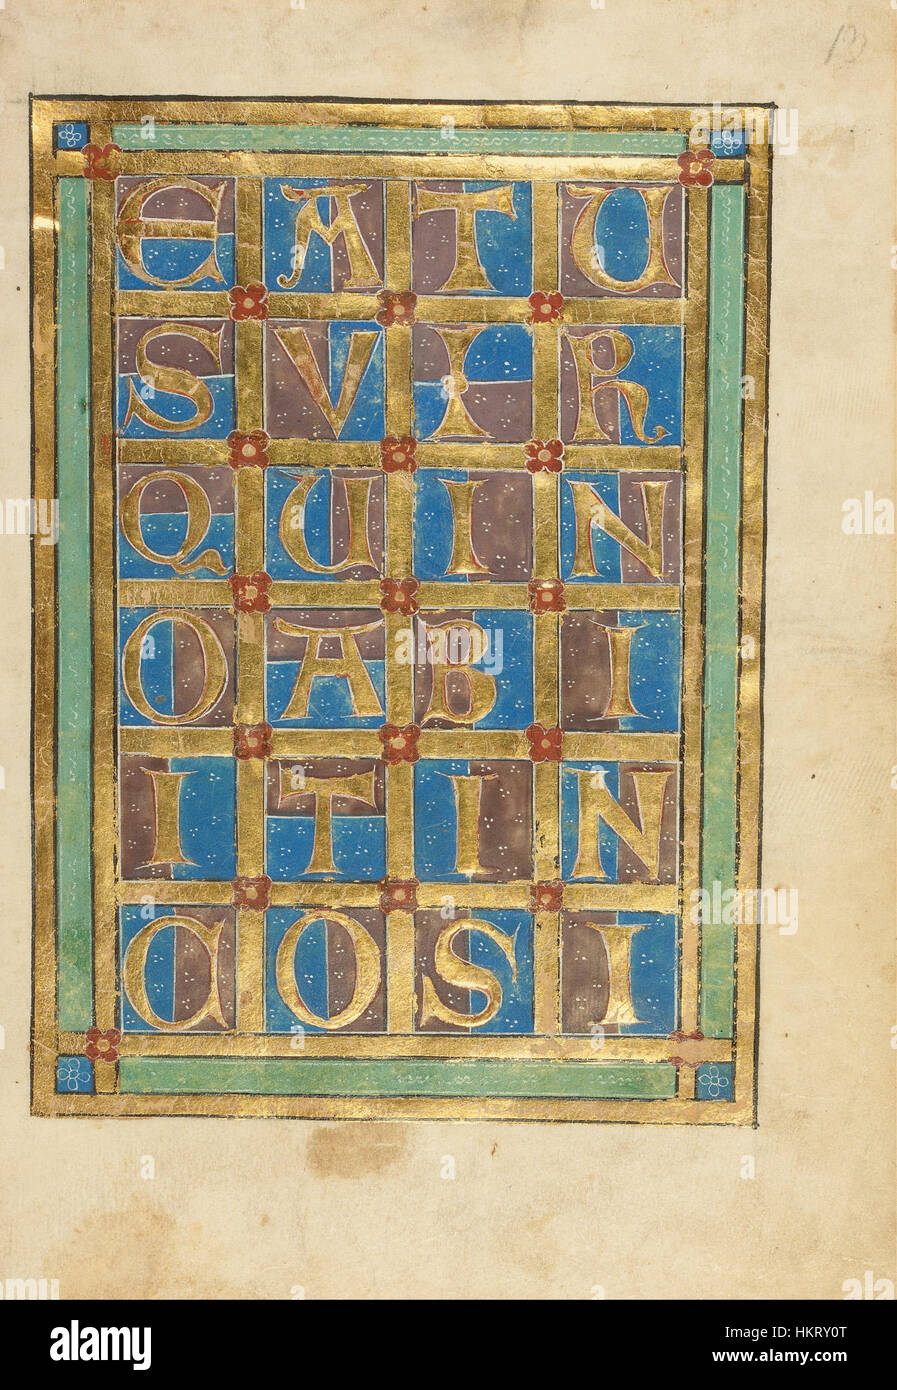 EATU
SVIR
QUIN
OABI
ITIN
COSI
13
alamy
Image ID: HKRY0T
www.alamy.com